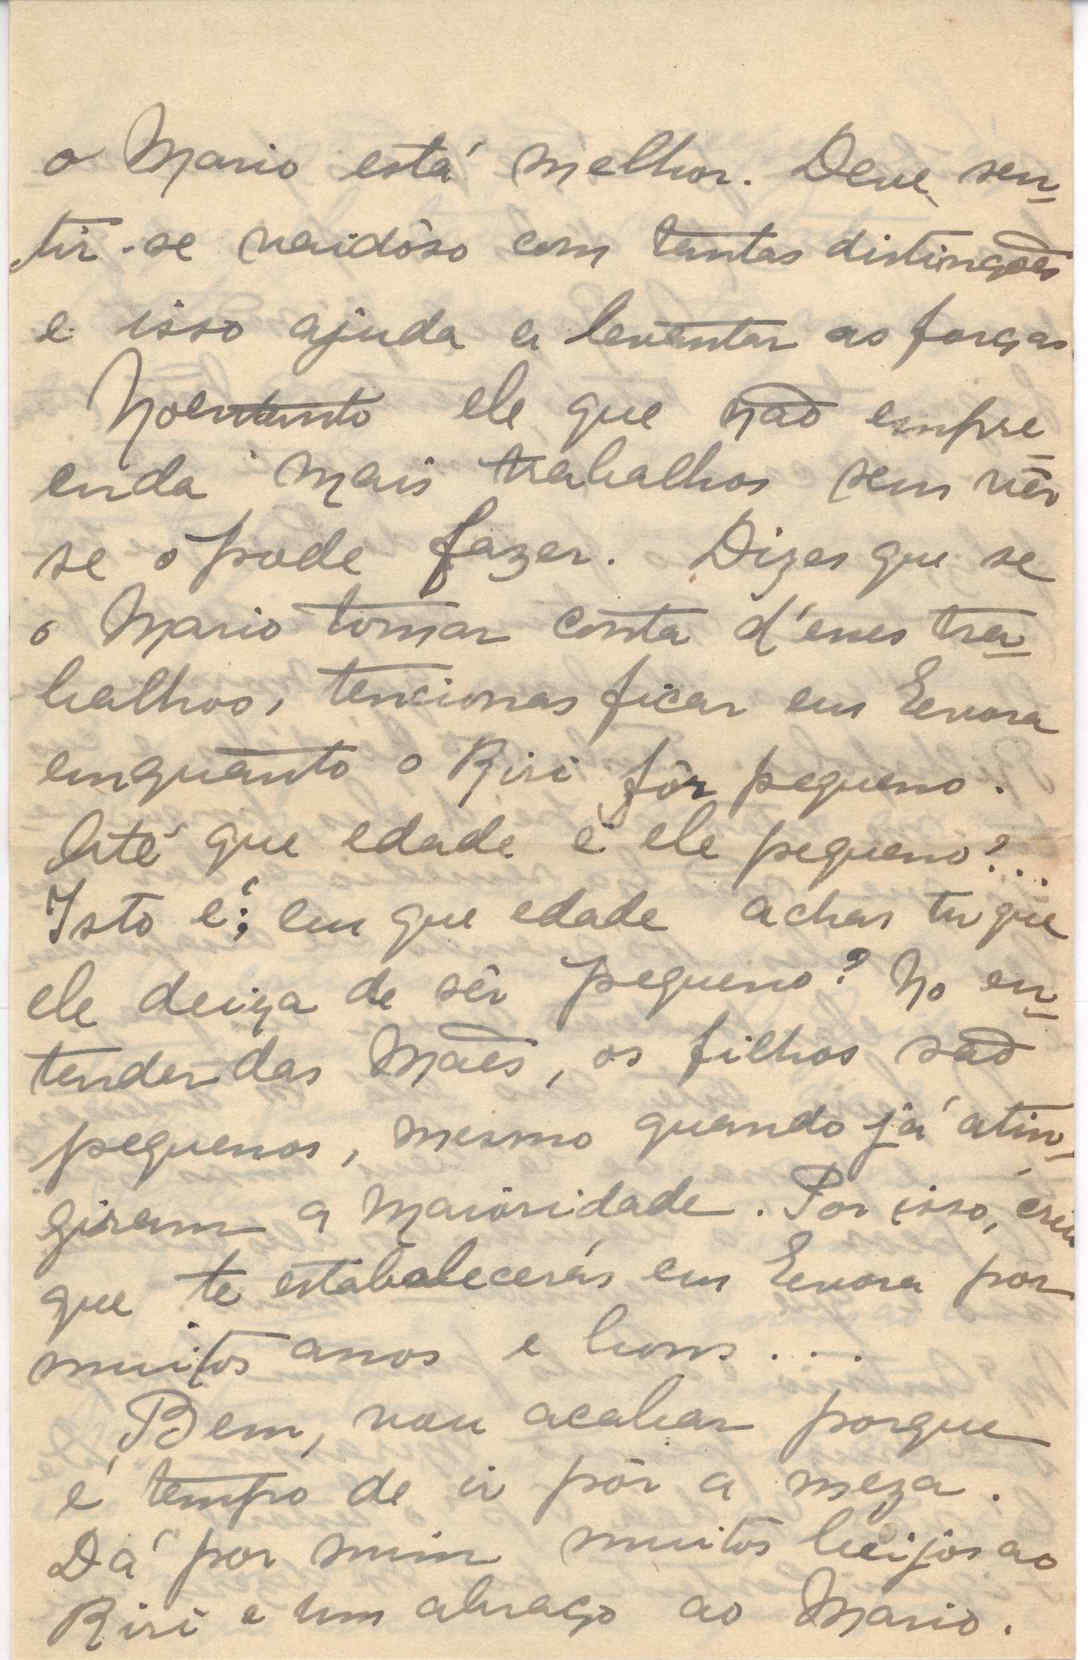 o Mario está melhor. Deve sen-
tir-se vaidôso com tantas distinções
e isso ajuda a levantar as forças
Noentanto ele que não empre-
enda mais trabalhos sem vêr
se o pode fazer. Dizes que se
o Mario tomar conta d'esses tra-
balhos, tencionas ficar em Evora
emquanto o Riri fôr pequeno.
Até que edade é ele pequeno?...
Isto é; em que edade achas tu que
ele deixa de sêr pequeno? No en-
tender das Mães, os filhos são
pequenos, mesmo quando já atin-
giram a maioridade. Por isso, creio
que te estabalecerás em Evora por
muitos anos e bons...
Bem, vou acabar porque
é tempo de ir pôr a meza.
Dá por mim muitos beijos ao
Riri e um abraço ao Mario.